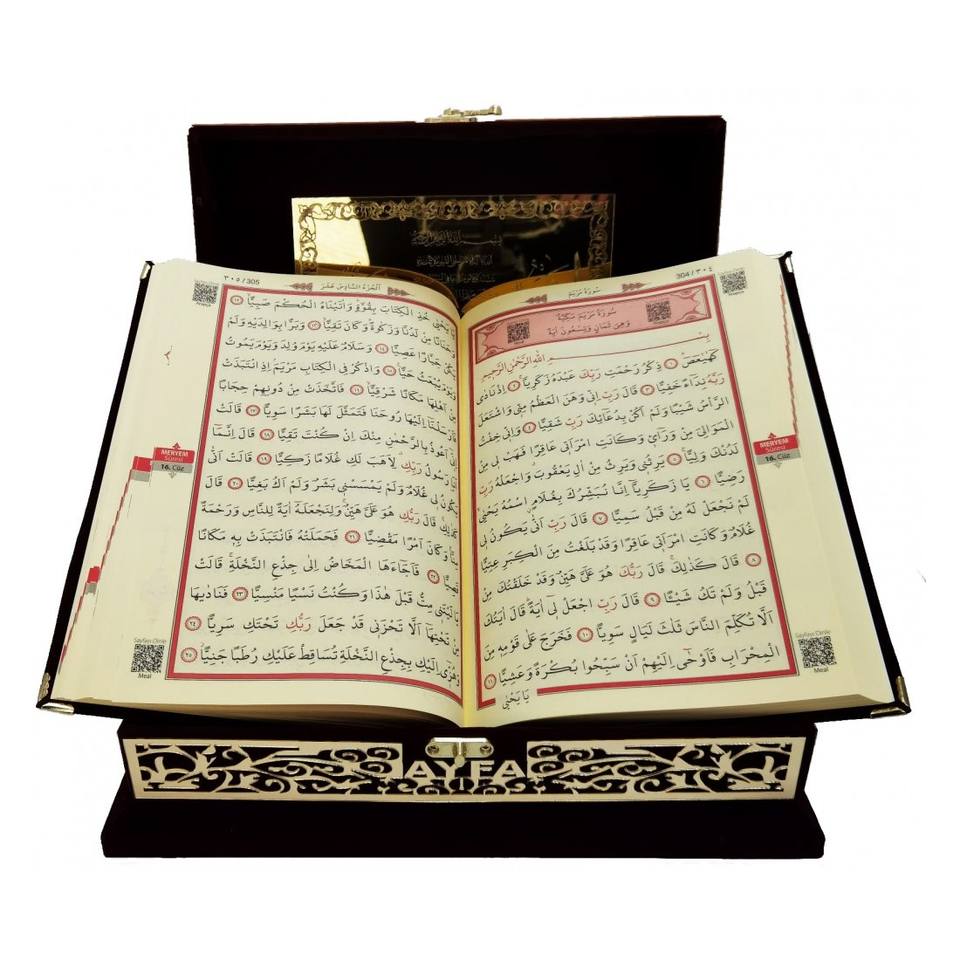 304 / ٣٠٤
سُورَةُ مَرْيَمَ
سُورَةُ مَرْيَمَ مَكِّيَّةٌ
وَهِىَ ثَمَانٍ وَتِسْعُونَ اٰيَةً
بِسْـــمِ اللّٰهِ الرَّحْمٰنِ الرَّحِيمِ
كٓهٰيٰعٓصٓ ١ ذِكْرُ رَحْمَتِ رَبِّكَ عَبْدَهُ زَكَرِيَّا ٢ اِذْ نَادٰى
رَبَّهُ نِدَاءً خَفِيًّا ٣ قَالَ رَبِّ اِنِّى وَهَنَ الْعَظْمُ مِنِّى وَاشْتَعَلَ
الرَّأْسُ شَيْبًا وَلَمْ اَكُنْ بِدُعَائِكَ رَبِّ شَقِيًّا ٤ وَاِنِّى خِفْتُ
الْمَوَالِىَ مِنْ وَرَاءِى وَكَانَتِ امْرَاَتِى عَاقِرًا فَهَبْ لِى مِنْ
لَدُنْكَ وَلِيًّا ٥ يَرِثُنِى وَيَرِثُ مِنْ اٰلِ يَعْقُوبَ وَاجْعَلْهُ رَبِّ
رَضِيًّا ٦ يَا زَكَرِيَّا اِنَّا نُبَشِّرُكَ بِغُلَامٍ اسْمُهُ يَحْيٰى
لَمْ نَجْعَلْ لَهُ مِنْ قَبْلُ سَمِيًّا ٧ قَالَ رَبِّ اَنّٰى يَكُونُ لِى
غُلَامٌ وَكَانَتِ امْرَاَتِى عَاقِرًا وَقَدْ بَلَغْتُ مِنَ الْكِبَرِ عِتِيًّا
٨ قَالَ كَذٰلِكَ قَالَ رَبُّكَ هُوَ عَلَىَّ هَيِّنٌ وَقَدْ خَلَقْتُكَ مِنْ
قَبْلُ وَلَمْ تَكُ شَيْئًا ٩ قَالَ رَبِّ اجْعَلْ لِى اٰيَةً قَالَ اٰيَتُكَ
اَلَّا تُكَلِّمَ النَّاسَ ثَلٰثَ لَيَالٍ سَوِيًّا ١٠ فَخَرَجَ عَلٰى قَوْمِهِ مِنَ
الْمِحْرَابِ فَاَوْحٰى اِلَيْهِمْ اَنْ سَبِّحُوا بُكْرَةً وَعَشِيًّا ١١
يَا يَحْيٰى
MERYEM
Sûresi
16. Cüz
Sayfayı Dinle
Meal
٣٠٥ / 305
اَلْجُزْءُ السَّادِسُ عَشَرَ
يَا يَحْيٰى خُذِ الْكِتَابَ بِقُوَّةٍ وَاٰتَيْنَاهُ الْحُكْمَ صَبِيًّا ١٢
وَحَنَانًا مِنْ لَدُنَّا وَزَكٰوةً وَكَانَ تَقِيًّا ١٣ وَبَرًّا بِوَالِدَيْهِ وَلَمْ
يَكُنْ جَبَّارًا عَصِيًّا ١٤ وَسَلَامٌ عَلَيْهِ يَوْمَ وُلِدَ وَيَوْمَ يَمُوتُ
وَيَوْمَ يُبْعَثُ حَيًّا ١٥ وَاذْكُرْ فِى الْكِتَابِ مَرْيَمَ اِذِ انْتَبَذَتْ
مِنْ اَهْلِهَا مَكَانًا شَرْقِيًّا ١٦ فَاتَّخَذَتْ مِنْ دُونِهِمْ حِجَابًا
فَاَرْسَلْنَا اِلَيْهَا رُوحَنَا فَتَمَثَّلَ لَهَا بَشَرًا سَوِيًّا ١٧ قَالَتْ
اِنِّى اَعُوذُ بِالرَّحْمٰنِ مِنْكَ اِنْ كُنْتَ تَقِيًّا ١٨ قَالَ اِنَّمَا
اَنَا رَسُولُ رَبِّكِ لِاَهَبَ لَكِ غُلَامًا زَكِيًّا ١٩ قَالَتْ اَنّٰى
يَكُونُ لِى غُلَامٌ وَلَمْ يَمْسَسْنِى بَشَرٌ وَلَمْ اَكُ بَغِيًّا ٢٠ قَالَ
كَذٰلِكِ قَالَ رَبُّكِ هُوَ عَلَىَّ هَيِّنٌ وَلِنَجْعَلَهُ اٰيَةً لِلنَّاسِ وَرَحْمَةً
مِنَّا وَكَانَ اَمْرًا مَقْضِيًّا ٢١ فَحَمَلَتْهُ فَانْتَبَذَتْ بِهِ مَكَانًا
قَصِيًّا ٢٢ فَاَجَاءَهَا الْمَخَاضُ اِلٰى جِذْعِ النَّخْلَةِ قَالَتْ
يَا لَيْتَنِى مِتُّ قَبْلَ هٰذَا وَكُنْتُ نَسْيًا مَنْسِيًّا ٢٣ فَنَادٰيهَا
مِنْ تَحْتِهَا اَلَّا تَحْزَنِى قَدْ جَعَلَ رَبُّكِ تَحْتَكِ سَرِيًّا ٢٤
وَهُزِّى اِلَيْكِ بِجِذْعِ النَّخْلَةِ تُسَاقِطْ عَلَيْكِ رُطَبًا جَنِيًّا ٢٥
MERYEM
Sûresi
16. Cüz
Sayfayı Dinle
Meal
AYFA